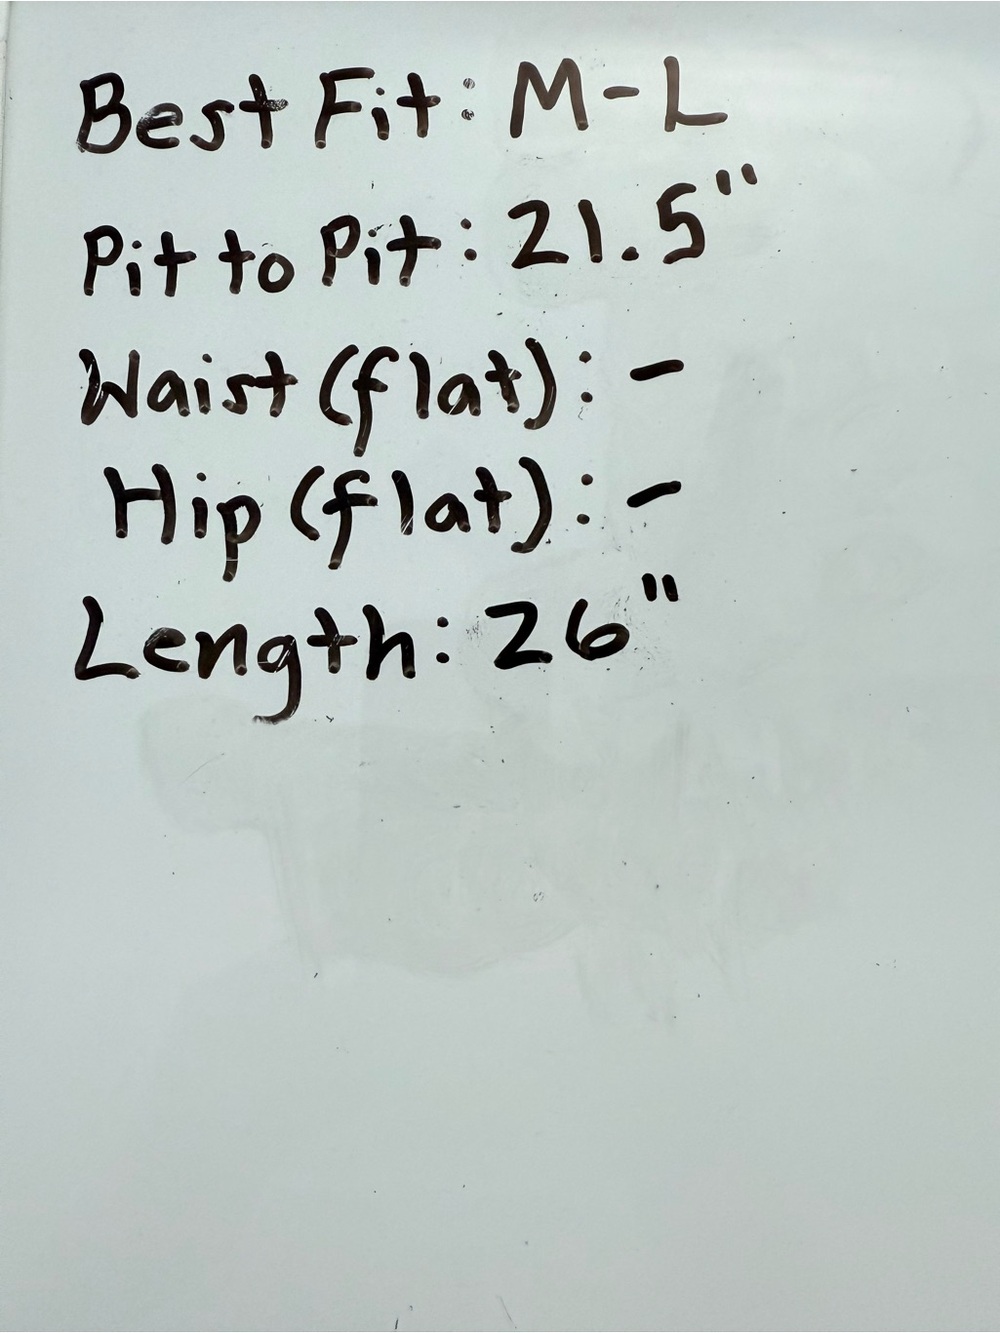 Best Fit: M-L
Pit to Pit: 21.5"
Waist (flat): -
Hip (flat): -
Length: 26"